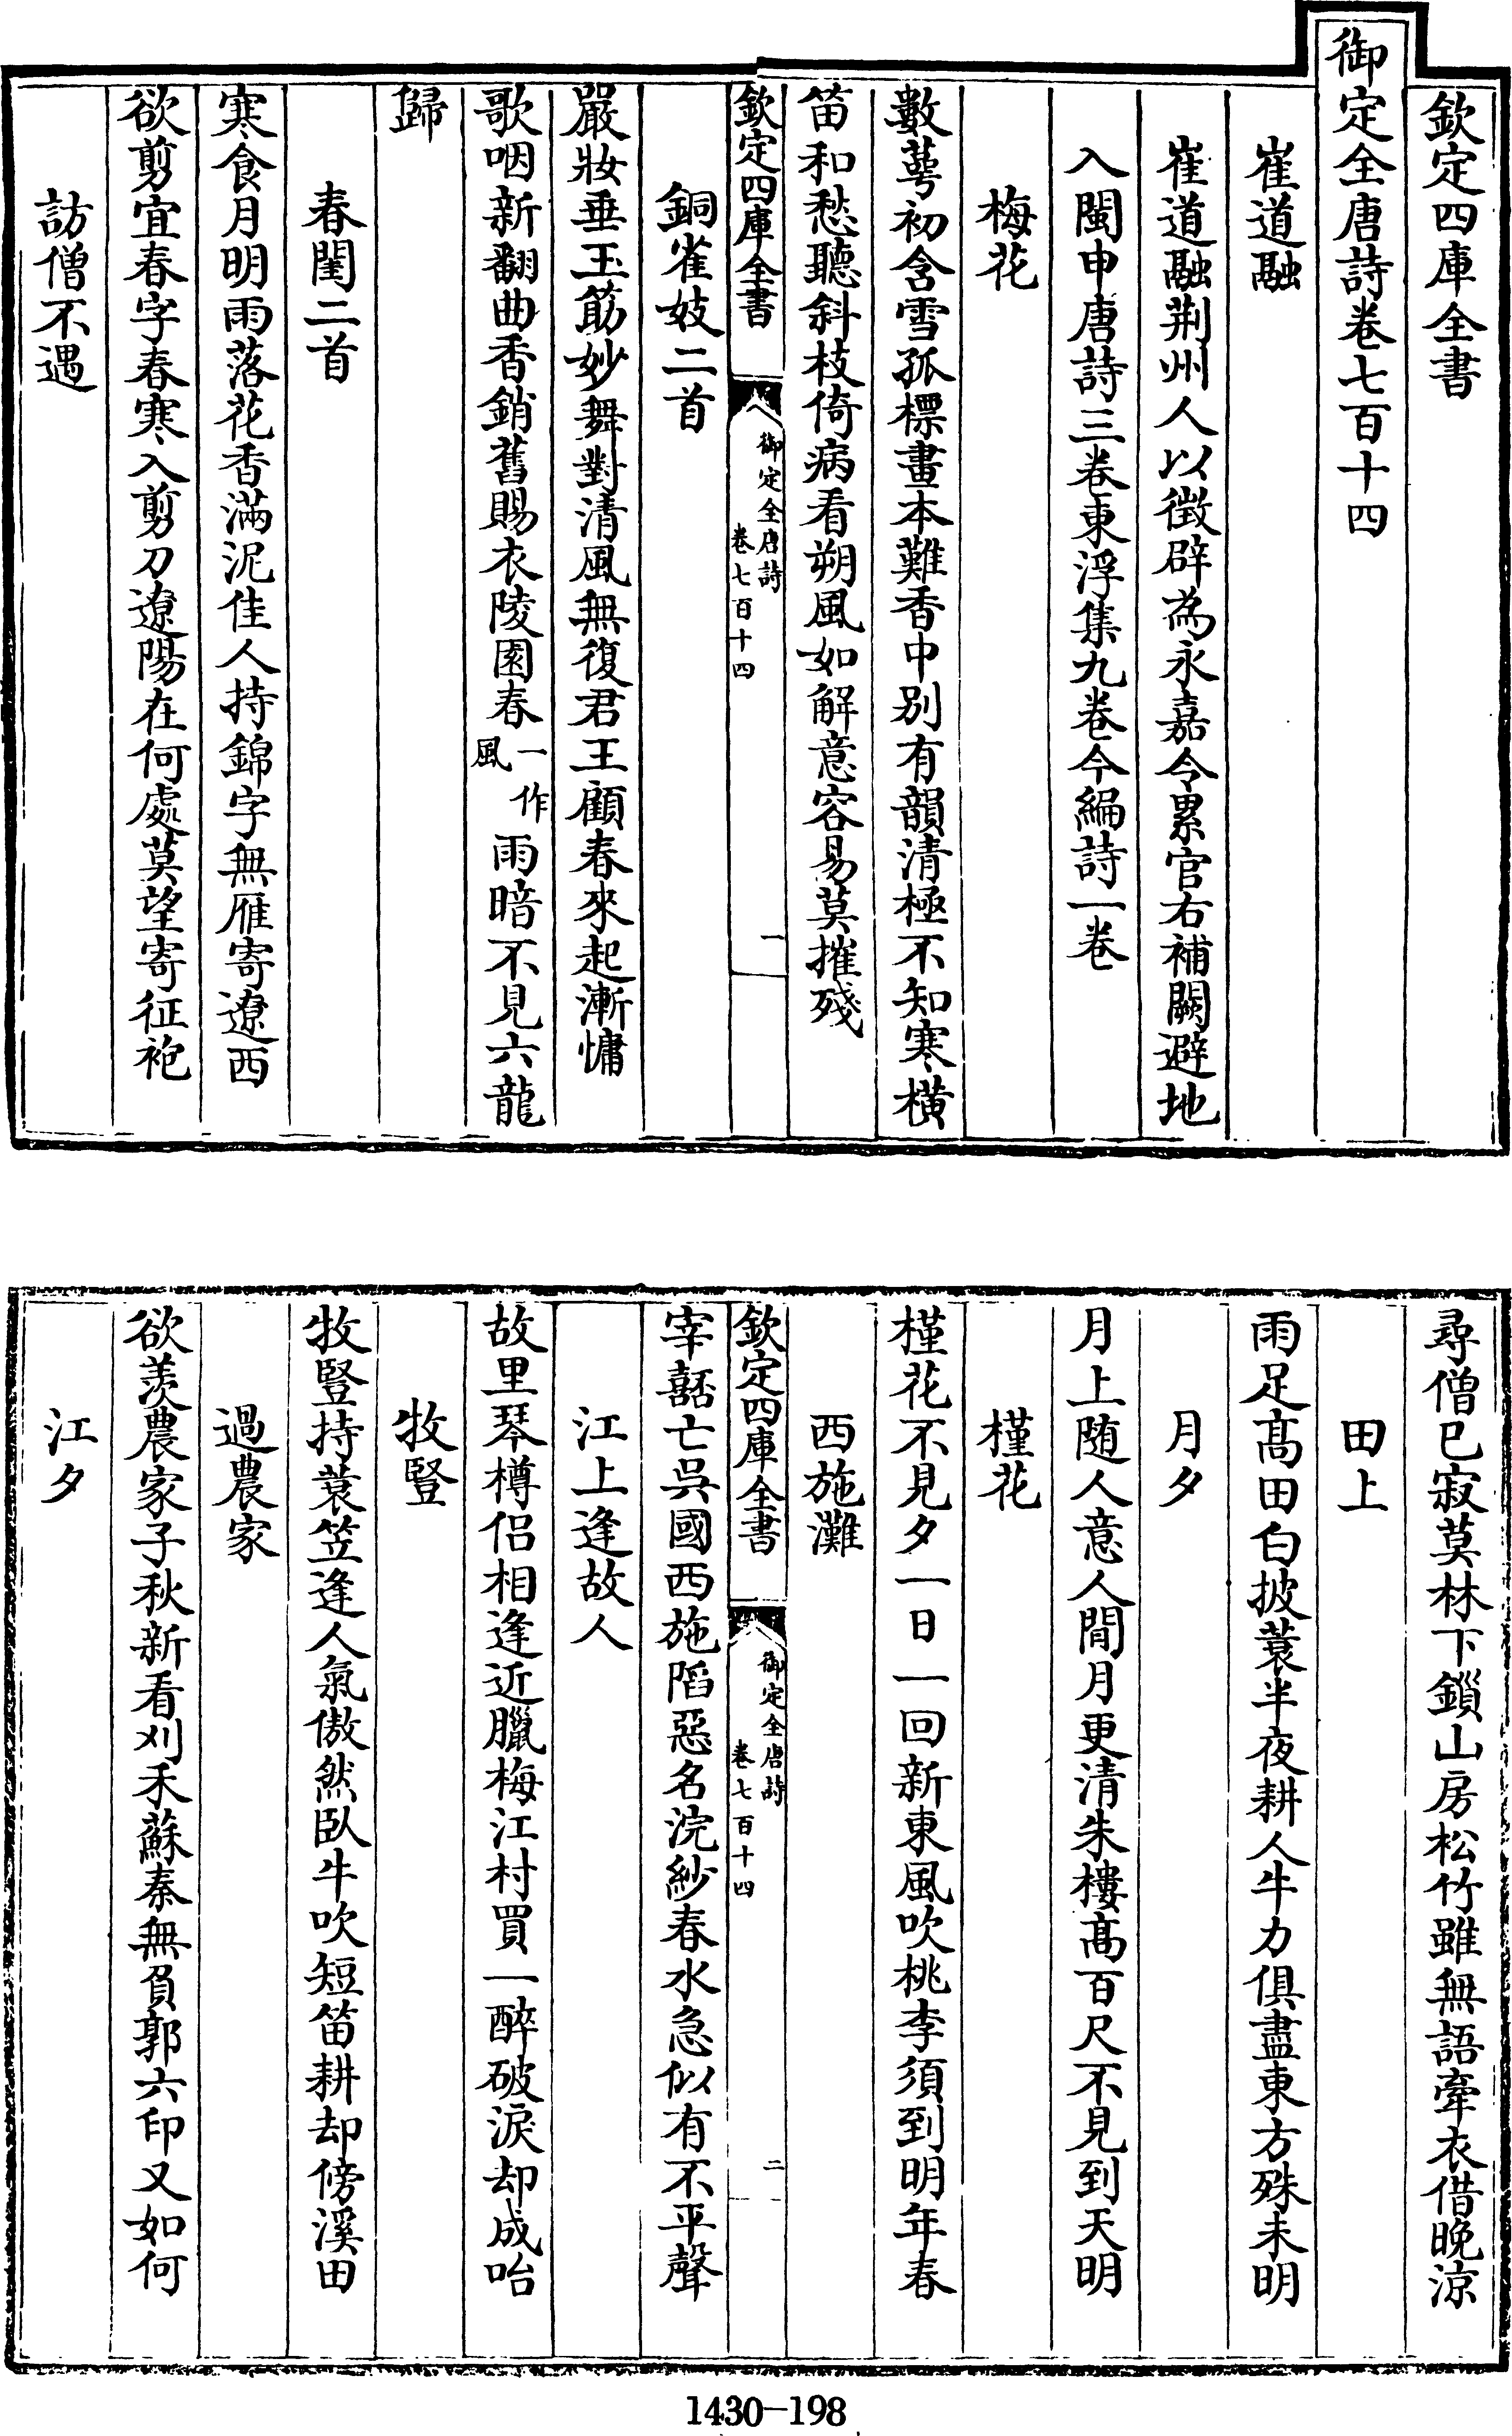 欽定四庫全書
御定全唐詩卷七百十四
崔道融
崔道融荆州人以徴辟為永嘉令累官右補闕避地
入閩申唐詩三卷東浮集九卷今編詩一卷
梅花
數萼初含雪孤標畫本難香中别有韻清極不知寒橫
笛和愁聽斜枝倚病看朔風如解意容易莫摧殘
欽定四庫全書 御定全唐詩 卷七百十四 一
銅雀妓二首
嚴妝垂玉筯妙舞對清風無復君王顧春來起漸慵
歌咽新翻曲香銷舊賜衣陵園春一作風雨暗不見六龍
歸
春閨二首
寒食月明雨落花香滿泥佳人持錦字無雁寄遼西
欲剪宜春字春寒入剪刀遼陽在何處莫望寄征袍
訪僧不遇
尋僧已寂莫林下鎻山房松竹雖無語牽衣借晚涼
田上
雨足髙田白披蓑半夜耕人牛力俱盡東方殊未明
月夕
月上随人意人閒月更清朱樓髙百尺不見到天明
槿花
槿花不見夕一日一回新東風吹桃李須到明年春
西施灘
宰嚭亡吳國西施陷惡名浣紗春水急似有不平聲
欽定四庫全書 御定全唐詩 卷七百十四 二
江上逢故人
故里琴樽侣相逢近臘梅江村買一醉破淚却成咍
牧豎
牧豎持蓑笠逢人氣傲然臥牛吹短笛耕却傍溪田
過農家
欲羨農家子秋新看刈禾蘇秦無負郭六印又如何
江夕
1430-198